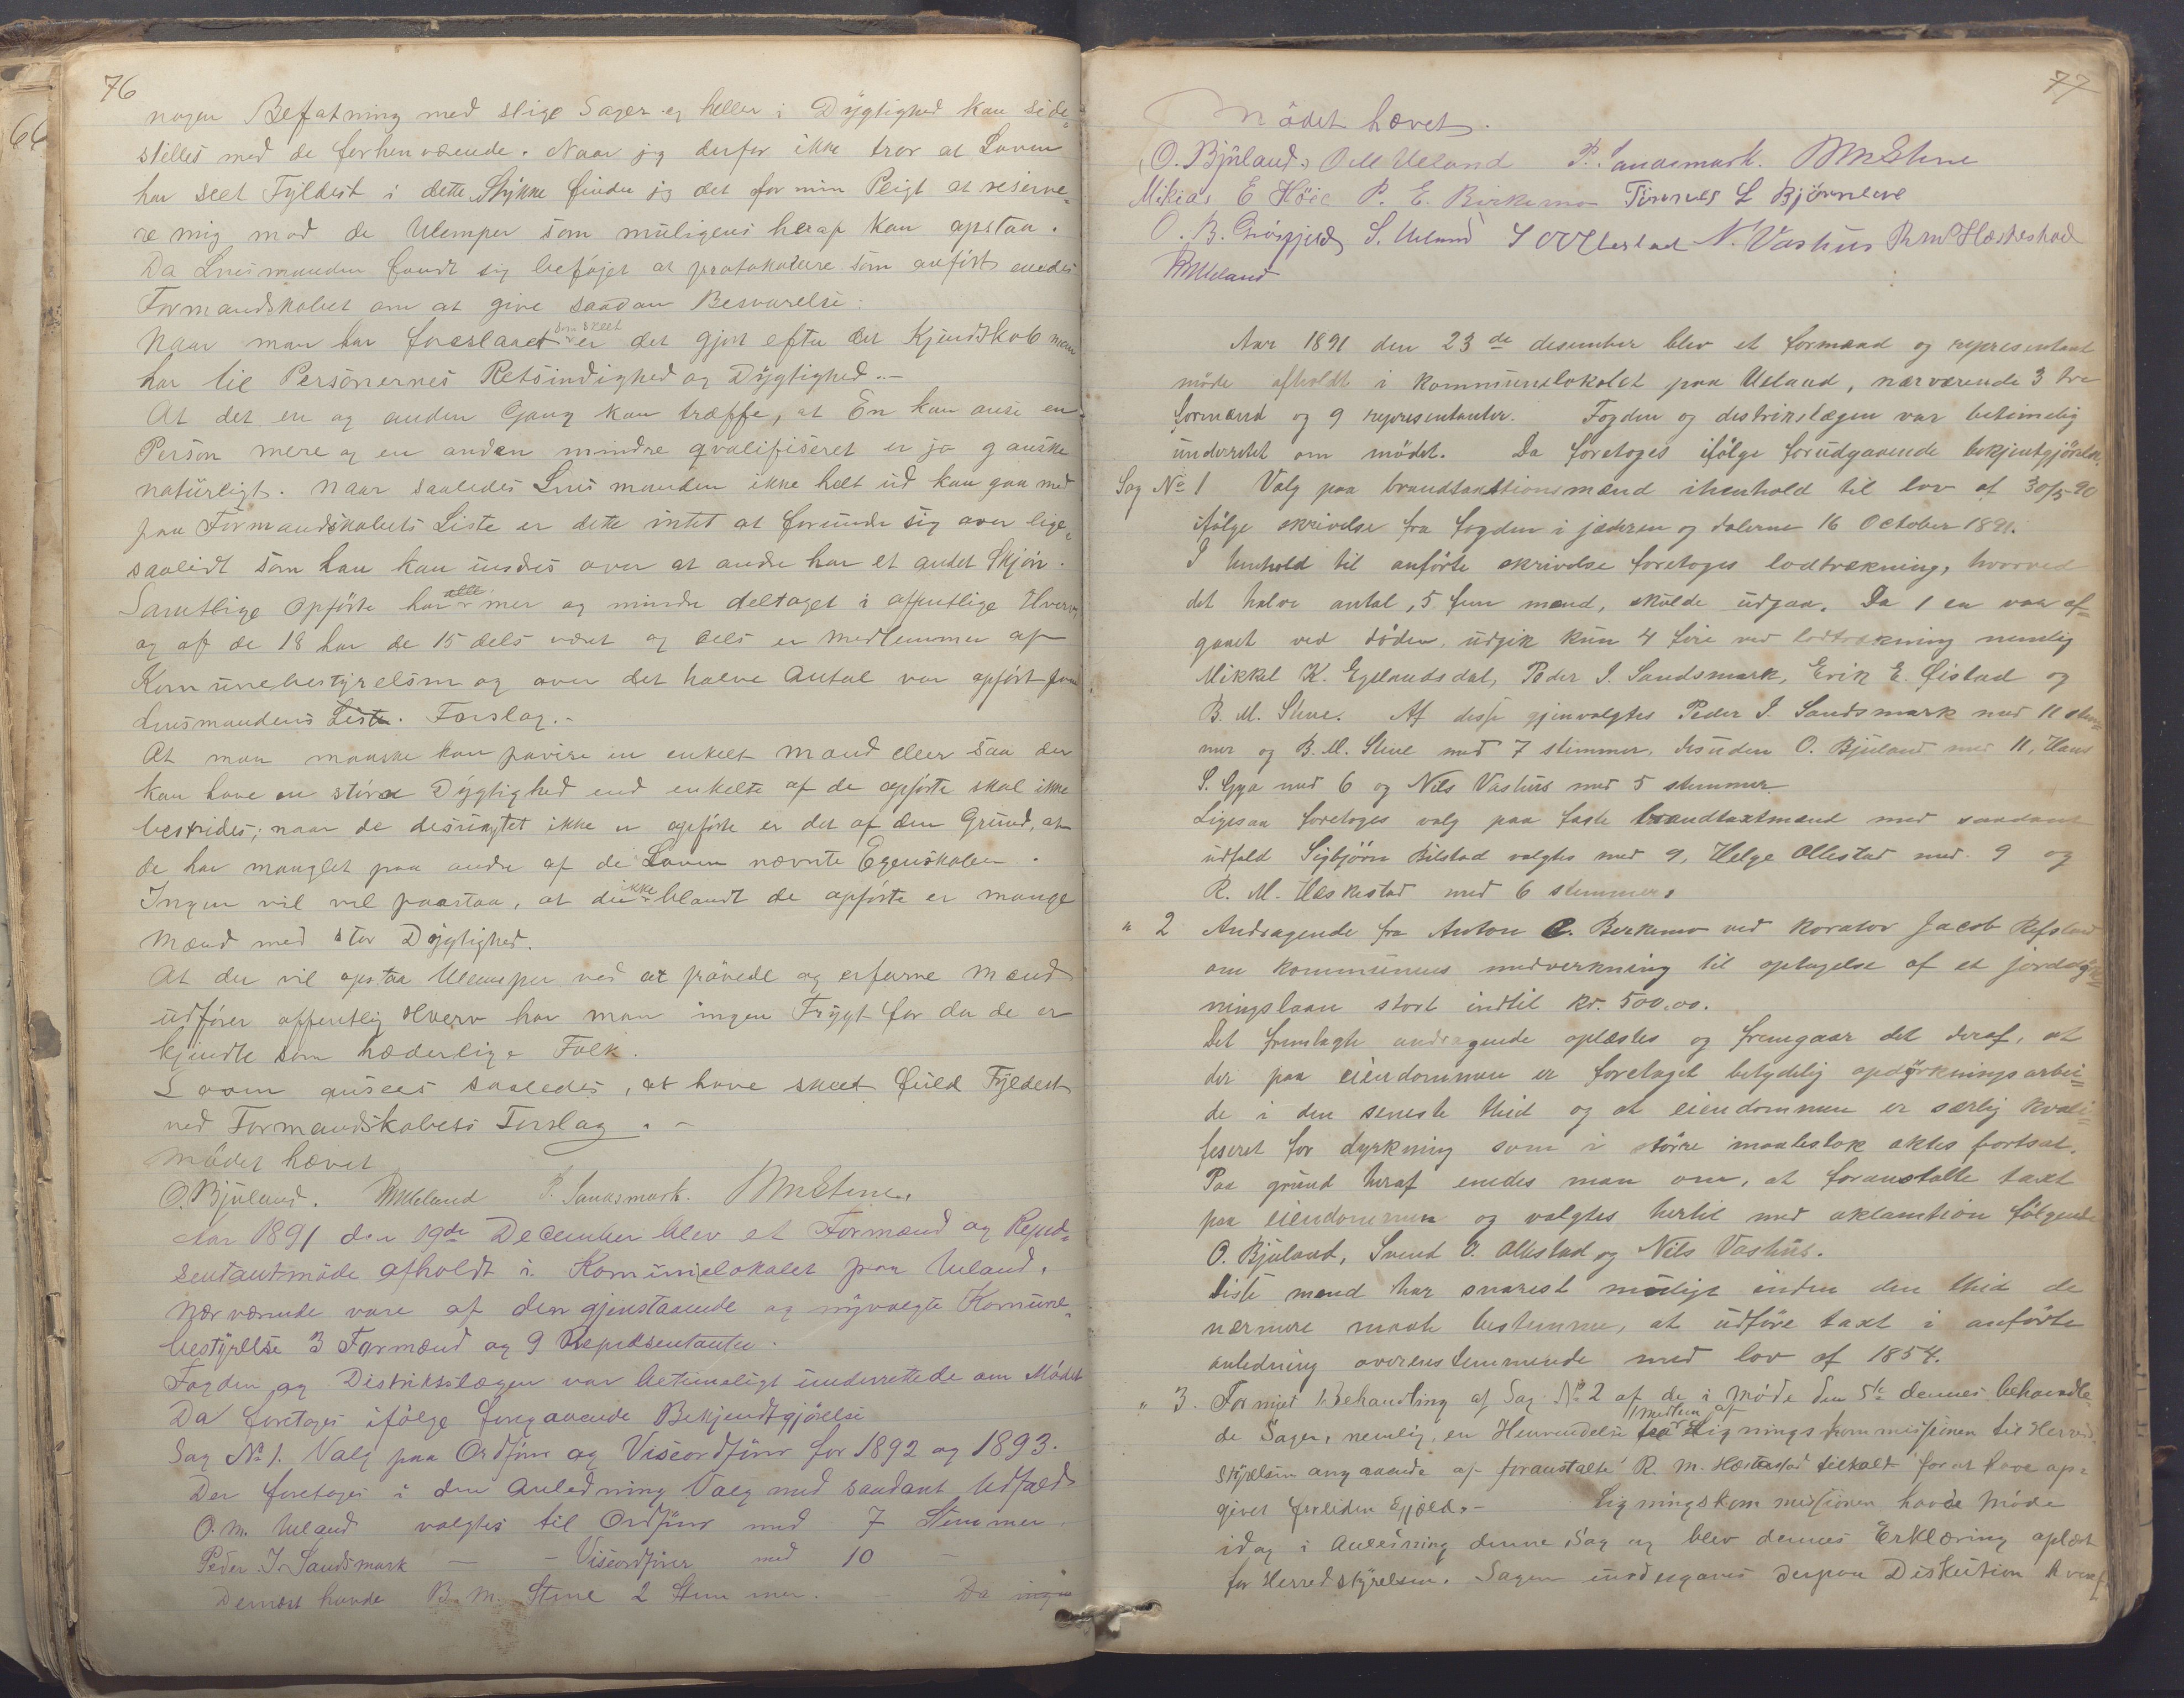 76
nogen Befatning med slige Sager ej heller i Dygtighed kan side-
stilles med de forhenværende. Naar jeg derfor ikke tror at Loven
har skeet Fyldest i dette Stykke finder jeg det for min Pligt at reserve-
re mig mod de Ulemper som muligens heraf kan opstaa.
Da Lensmanden fandt sig beføjet at protokolere som anført enedes
Formandskabet om at give saadan Besvarelse:
Naar man har foreslaaet som skeet er det gjort efter det Kjendskab man
har til Personernes Retsindighed og Dygtighed.-
At det en og anden Gang kan træffe, at Èn kan anse en
Person mere og en anden mindre qvalifiseret er jo ganske
naturligt. Naar saaledes Lensmanden ikke helt ud kan gaa med
paa Formandskabets Liste er dette intet at forundre sig over lige-
saalidt som han kan undres over at andre har et andet Skjøn.
Samtlige Opførte har alle mer og mindre deltaget i offentlige Hverv
og af de 18 har de 15 dels været og dels er Medlemmer af
Komunebestyrelsen og over det halve Antal var opført paa
Lensmandens Liste. Forslag.-
At man maaske kan paavise en enkelt Mand eller saa der
kan have en større Dygtighed end enkelte af de opførte skal ikke
bestrides; naar de desuagtet ikke er opførte er det af den Grund, at
de har manglet paa andre af de i Loven nævnte Egenskaber.
Ingen vil vel paastaa, at der ikke blandt de opførte er mange
Mænd med stor Dygtighed.
At der vil opstaa Ulemper ved at prøvede og erfarne Mænd
udfører offentlig Hverv har man ingen Frygt for da de er
kjendte som hæderlige Folk.
Loven ansees saaledes, at have skeet fuld Fyldest
ved Formandskabets Forslag. -
Mødet hævet
O. Bjuland. RMUeland P. Sandsmark. BMStene.
Aar 1891 den 19de December blev et Formænd og Repræ-
sentantmøde afholdt i Komunelokalet paa Ueland.
Nærværende vare af den gjenstaaende og nyvalgte Komune-
bestyrelse 3 Formænd og 9 Repræsentanter.
Fogden og Distriktslægen var betimeligt underrettede om Mødet
Da foretoges ifølge foregaaende Bekjendtgjørelse
Sag No 1. Valg paa Ordfører og Viseordfører for 1892 og 1893.
Der foretoges i den Anledning Valg med saadant Udfald
O. M. Ueland valgtes til Ordfører med 7 Stemmer.
Peder J. Sandsmark — - Viseordfører med 10 —
Dernæst havde B. M. Stene 2 Stemmer. Da ingen
77
Mødet hævet.
O. Bjuland, O M Ueland P. Sandsmark. BMStene
Mikias E Høie P. E. Birkemo Tønnes L Bjørnleve
O. B. Grøsfjeld S. Ueland S O Ollestad N. Vashus R M Hæskestad
RMUeland
Aar 1891 den 23de desember blev et formand og representant
møde afholdt i kommunelokalet paa Ueland, nærværende 3 tre
formænd og 9 representanter. Fogden og distrikslægen var betimelig
underretet om mødet. Da foretoges ifølge forudgaaende bekjentgjørelse.
Sag No 1 Valg paa brandtaxtionsmænd ihenhold til lov af 30/5-90
ifølge skrivelse fra fogden i jæderen og dalerne 16 October 1891.
I henhold til anførte skrivelse foretoges lodtrækning, hvorved
det halve antal, 5 fem mænd, skulde udgaa. Da 1 en var af-
gaaet ved døden, udgik kun 4 fire ved lodtrækning nemlig
Mikkel K. Egelandsdal, Peder J. Sandsmark, Erik E. Øistad og
B. M. Stene. Af disse gjenvalgtes Peder J. Sandsmark med 11 stem-
mer og B. M. Stene med 7 stemmer, desuden O. Bjuland med 11, Hans
S. Gya med 6 og Nils Vashus med 5 stemmer
Ligesaa foretoges valg paa faste brandtaxtmænd med saadant
udfald Sigbjørn Bilstad valgtes med 9, Helge Ollestad med 9 og
R. M. Hæskestad med 6 stemmer.
" 2 Andragende fra Anton C. Berkemo ved korator Jacob Refsland
om kommunens medverkning til optagelse af et jorddyrk-
ningslaan stort indtil kr. 500,00.
Det fremlagte andragende oplæstes og fremgaar det deraf, at
der paa eiendommen er foretaget betydelig opdyrkningsarbei-
de i den seneste thid og at eiendommen er særlig kvali-
feseret for dyrkning som i større maalestok aktes fortsat.
Paa grund heraf enedes man om, at foranstalte taxt
paa eiendommen og valgtes hertil med aklamtion følgende
O. Bjuland, Svend O. Ollestad og Nils Vashus.
Diste mænd har snarest mulige inden den thid de
nærmere maate bestemme, at udføre taxt i anførte
anledning overenstemmende med lov af 1854.
" 3. Fornyet Behandling af Sag No 2 af de i Møde den 5te dennes behandle-
de Sager, nemlig en Henvendelse fra 1 medlem af Ligningskommissionen til Herred-
styrelsen angaaende at foranstalte R. M. Hæskestad tiltalt for at have op-
givet forliden Gjæld.- Ligningskommissionen havde Møde
idag i Anledning denne Sag og blev dennes Erklæring oplæst
for Herredstyrelsen. Sagen undergaves derpaa Diskution hvoref-